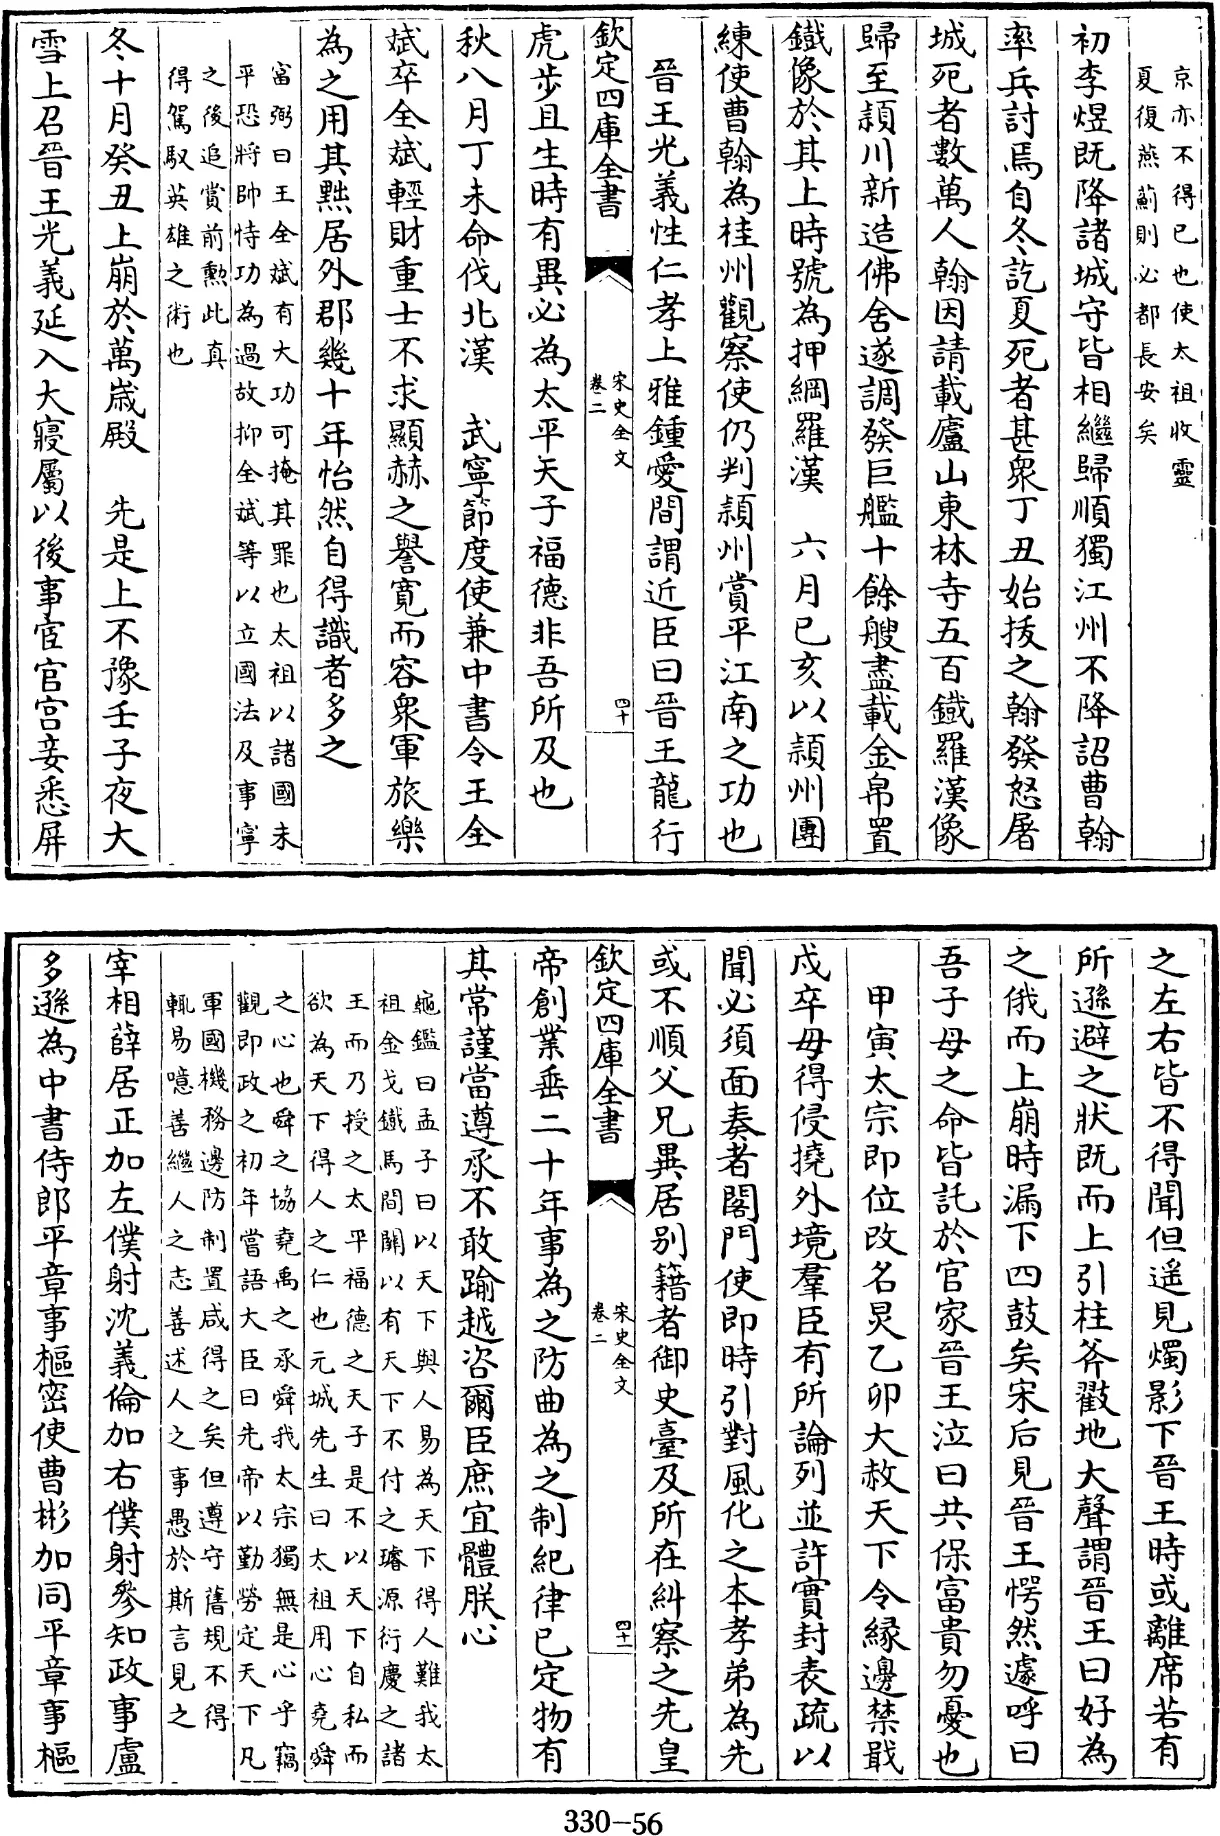 京亦不得已也使太祖收靈
夏復燕薊則必都長安矣
初李煜既降諸城守皆相繼歸順獨江州不降詔曹翰
率兵討焉自冬訖夏死者甚衆丁丑始拔之翰發怒屠
城死者數萬人翰因請載廬山東林寺五百鐵羅漢像
歸至潁川新造佛舍遂調發巨艦十餘艘盡載金帛置
鐵像於其上時號為押綱羅漢　六月己亥以潁州團
練使曹翰為桂州觀察使仍判潁州賞平江南之功也
晉王光義性仁孝上雅鍾愛間謂近臣曰晉王龍行
欽定四庫全書　宋史全文卷二　四十
虎步且生時有異必為太平天子福德非吾所及也
秋八月丁未命伐北漢　武寧節度使兼中書令王全
斌卒全斌輕財重士不求顯赫之譽寛而容衆軍旅樂
為之用其黜居外郡幾十年怡然自得識者多之
富弼曰王全斌有大功可掩其罪也太祖以諸國未
平恐將帥恃功為過故抑全斌等以立國法及事寧
之後追賞前勲此真
得駕馭英雄之術也
冬十月癸丑上崩於萬歳殿　先是上不豫壬子夜大
雪上召晉王光義延入大寢屬以後事宦官宫妾悉屏
之左右皆不得聞但遥見燭影下晉王時或離席若有
所遜避之狀既而上引柱斧戳地大聲謂晉王曰好為
之俄而上崩時漏下四鼓矣宋后見晉王愕然遽呼曰
吾子母之命皆託於官家晉王泣曰共保富貴勿憂也
甲寅太宗即位改名炅乙卯大赦天下令緣邊禁戢
戍卒毋得侵撓外境羣臣有所論列並許實封表疏以
聞必須面奏者閤門使即時引對風化之本孝弟為先
或不順父兄異居别籍者御史臺及所在糾察之先皇
欽定四庫全書　宋史全文卷二　四十一
帝創業垂二十年事為之防曲為之制紀律已定物有
其常謹當遵承不敢踰越咨爾臣庶宜體朕心
龜鑑曰孟子曰以天下與人易為天下得人難我太
祖金戈鐵馬間關以有天下不付之璿源衍慶之諸
王而乃授之太平福德之天子是不以天下自私而
欲為天下得人之仁也元城先生曰太祖用心堯舜
之心也舜之協堯禹之承舜我太宗獨無是心乎竊
觀即政之初年嘗語大臣曰先帝以勤勞定天下凡
軍國機務邊防制置咸得之矣但遵守舊規不得
輒易噫善繼人之志善述人之事愚於斯言見之
宰相薛居正加左僕射沈義倫加右僕射參知政事盧
多遜為中書侍郎平章事樞密使曹彬加同平章事樞
330-56